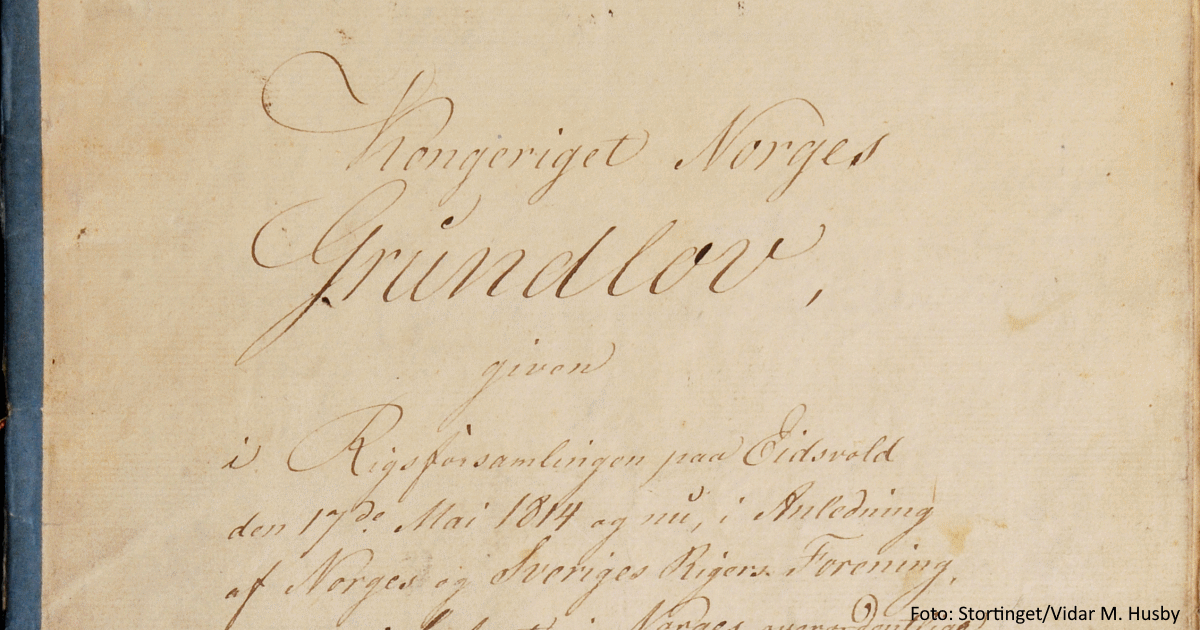 Kongeriget Norges
Grundlov,
given
i Rigsforsamlingen paa Eidsvold
den 17de Mai 1814 og nu, i Anledning
af Norges og Sveriges Rigers Forening,
i Norges overordentlige
Foto: Stortinget/Vidar M. Husby